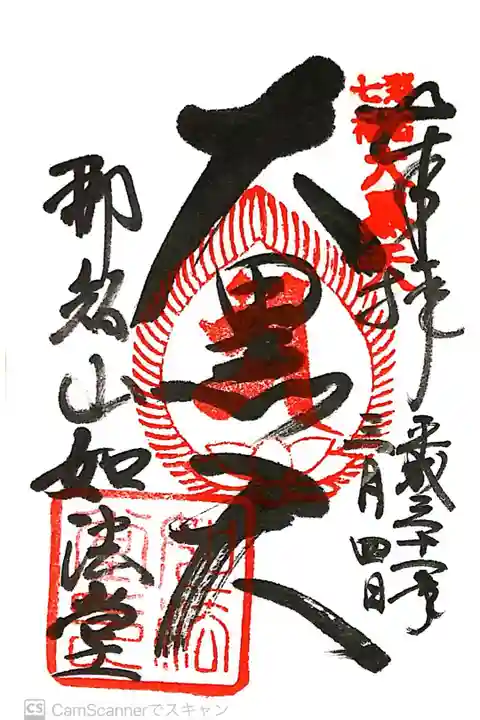 奉拝
平成三十一年
三月四日
七福
大黒天
大黒天
那智山如法堂
CS CamScannerでスキャン